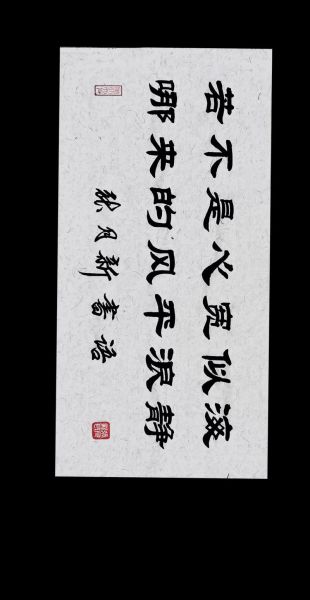 若不是心宽似海
哪来的风平浪静
月新書语